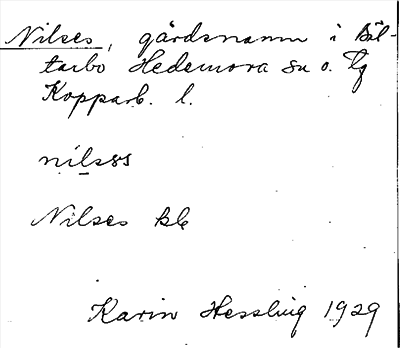 Nilses, gårdsnamn i Bäl-
tarbo Hedemora sn o. tg
Kopparb. l.
nilsɛs
Nilses kb
Karin Hessling 1929